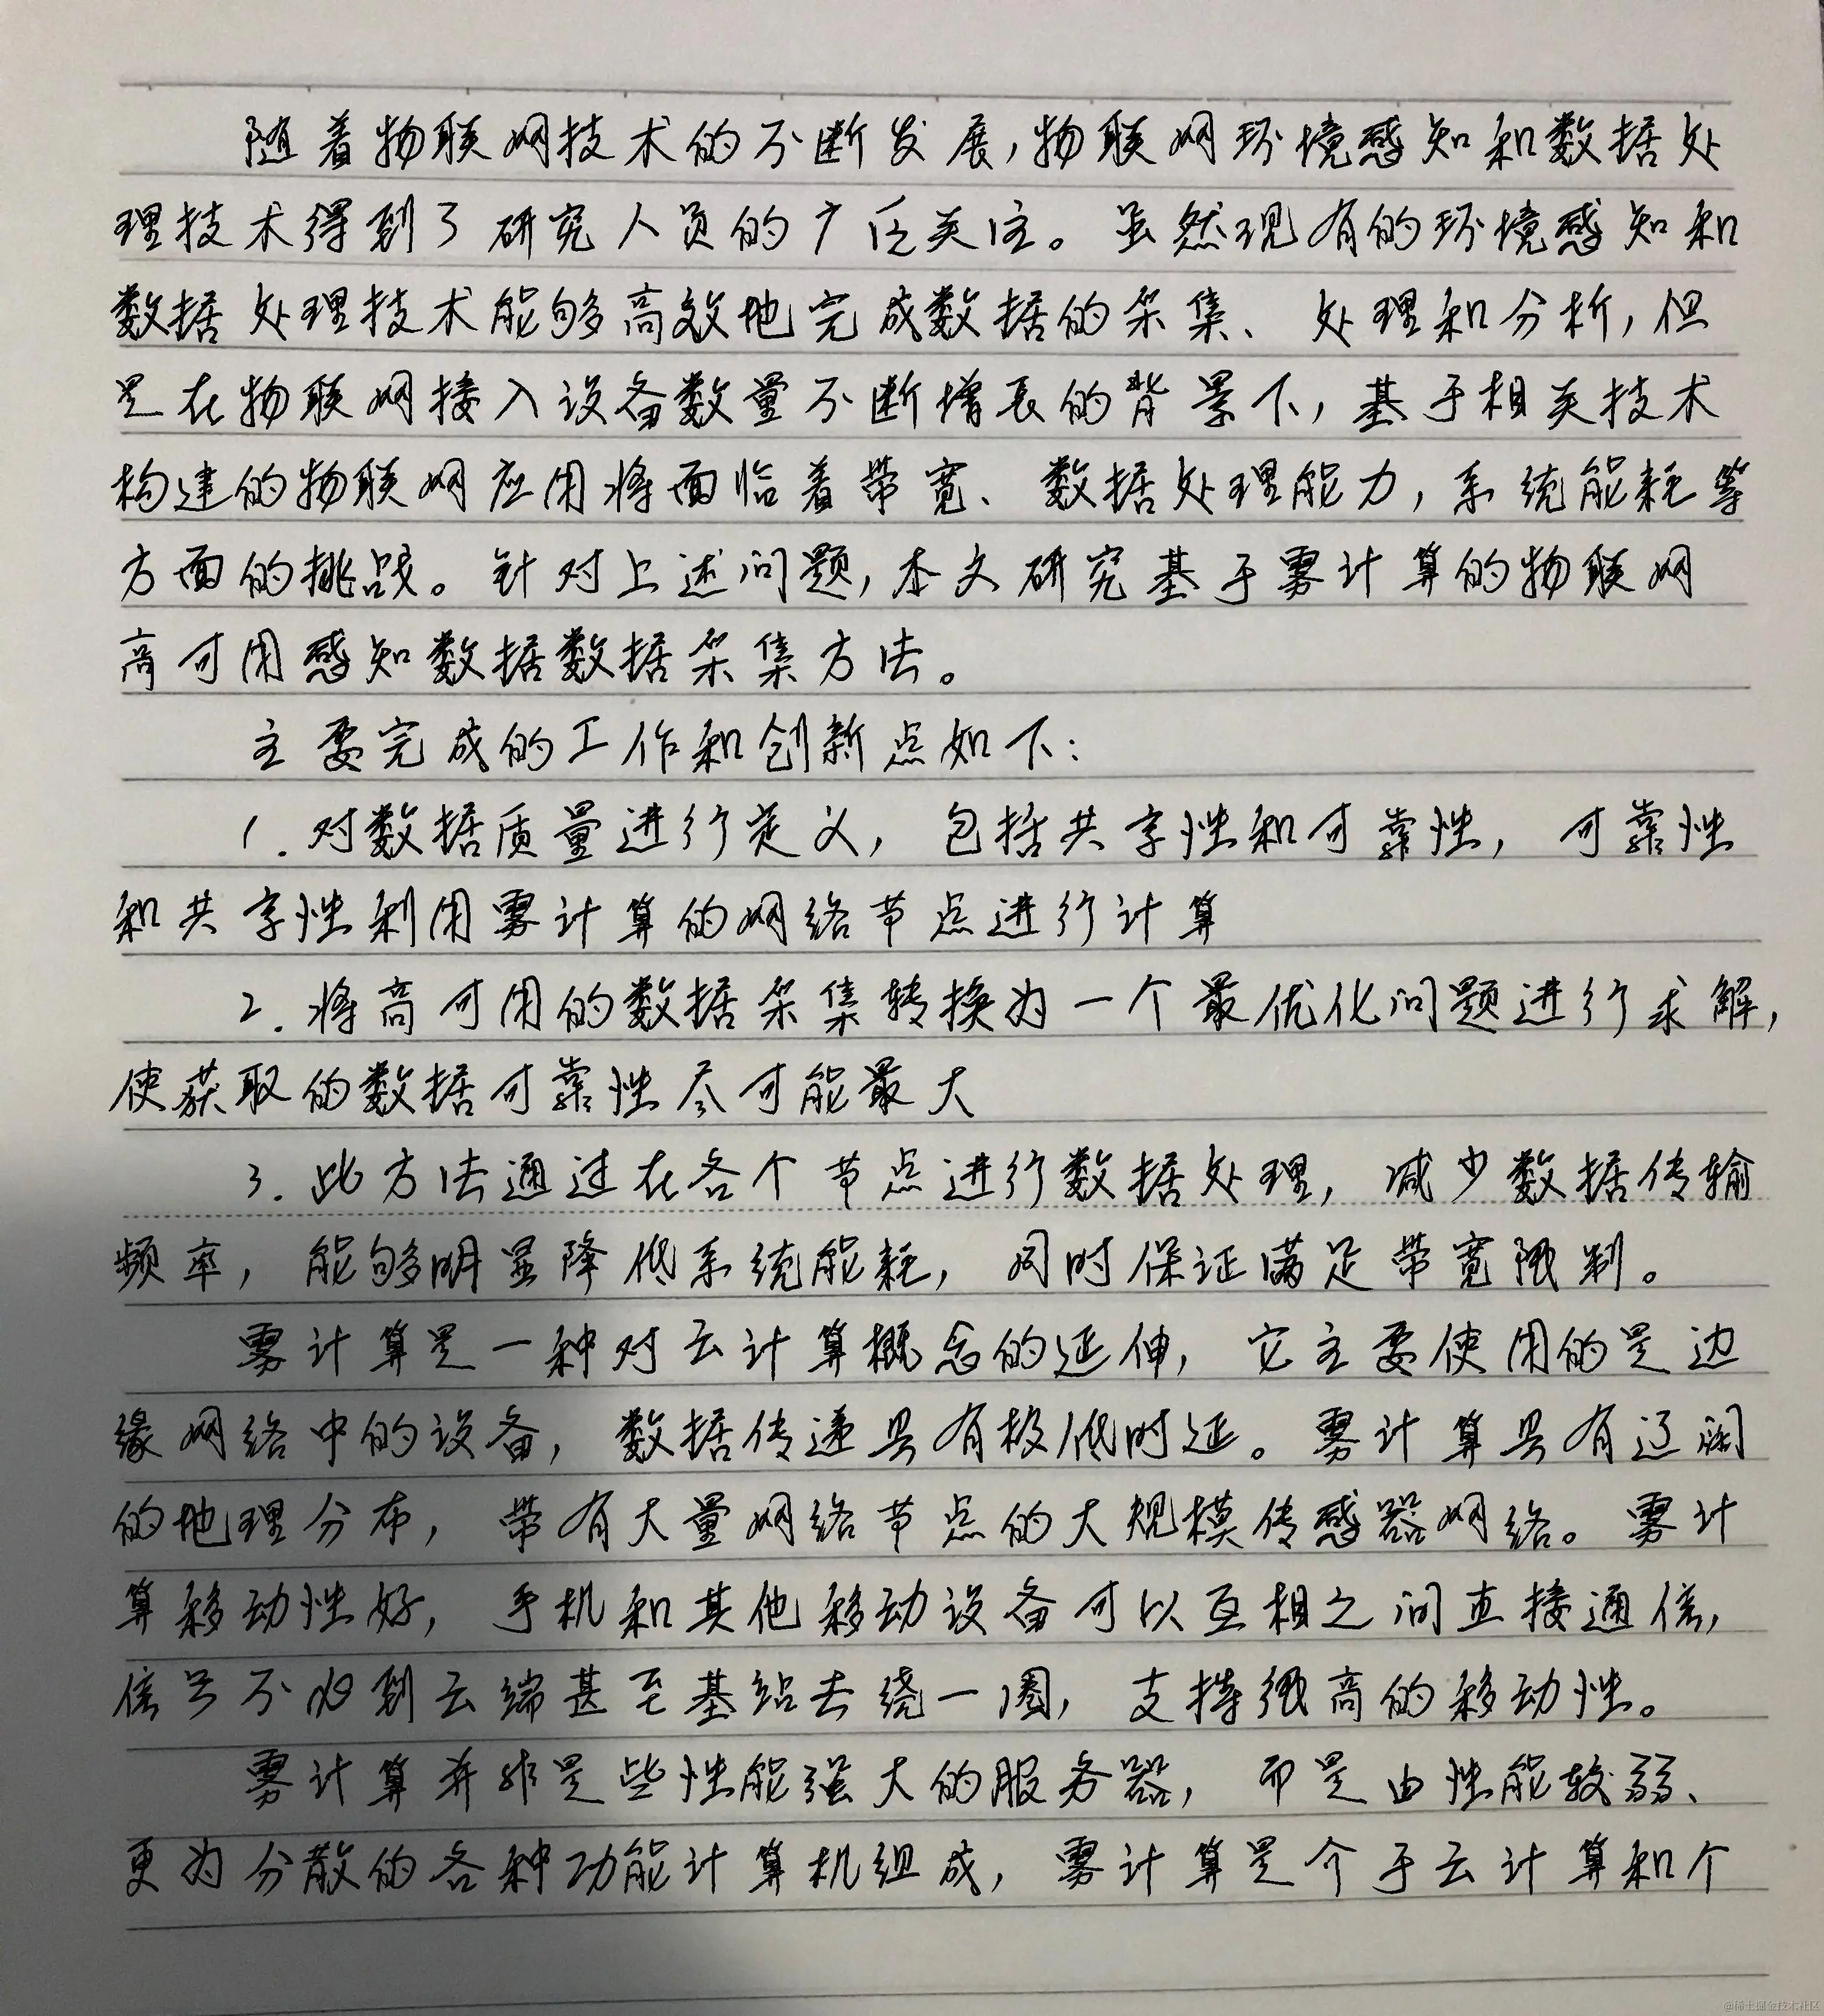 随着物联网技术的不断发展,物联网环境感知和数据处
理技术得到了研究人员的广泛关注。虽然现有的环境感知和
数据处理技术能够高效地完成数据的采集、处理和分析,但
是在物联网接入设备数量不断增长的背景下,基于相关技术
构建的物联网应用将面临着带宽、数据处理能力,系统能耗等
方面的挑战。针对上述问题,本文研究基于雾计算的物联网
高可用感知数据数据采集方法。
主要完成的工作和创新点如下:
1.对数据质量进行定义,包括共享性和可靠性,可靠性
和共享性利用雾计算的网络节点进行计算
2.将高可用的数据采集转换为一个最优化问题进行求解,
使获取的数据可靠性尽可能最大
3.此方法通过在各个节点进行数据处理,减少数据传输
频率,能够明显降低系统能耗,同时保证满足带宽限制。
雾计算是一种对云计算概念的延伸,它主要使用的是边
缘网络中的设备,数据传递具有极低时延。雾计算具有辽阔
的地理分布,带有大量网络节点的大规模传感器网络。雾计
算移动性好,手机和其他移动设备可以互相之间直接通信,
信号不必到云端甚至基站去绕一圈,支持很高的移动性。
雾计算并非是些性能强大的服务器,而是由性能较弱、
更为分散的各种功能计算机组成,雾计算是介于云计算和个
@稀土掘金技术社区